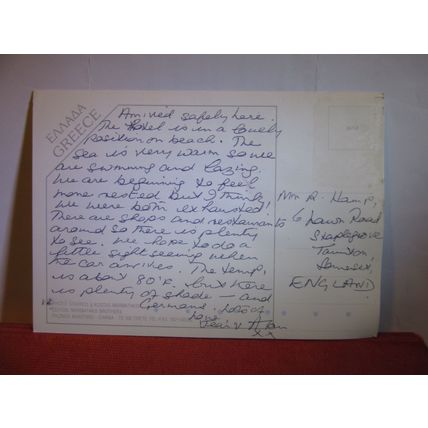 ΕΛΛΑΔΑ
GREECE
Arrived safely here.
The Hotel is in a lovely
Position on beach. The
Sea is very warm so we
are swimming and lazing.
We are beginning to feel
more rested but I think
we were both exhausted!
There are shops and restaurants
around so there is plenty
to see. We hope to do a
little sightseeing when
the car arrives. The temp,
is about 80°F. but there
is plenty of shade — and
Germans.
Love
Mrs R. Hamp,
6 Lawn Road
Staplegrove
Taunton,
Somerset,
ENGLAND